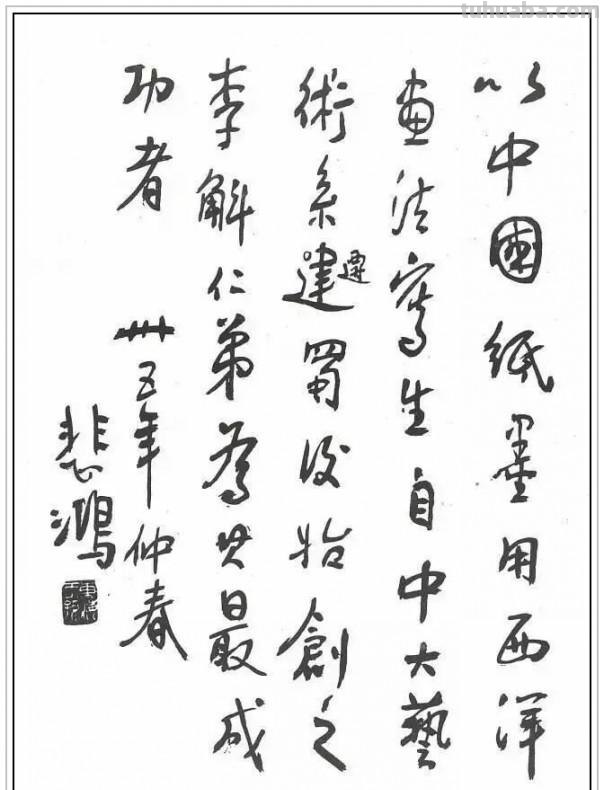 tuhuaba.com
以中國紙墨用西洋
畫法寫生自中大藝
術系建遷蜀後始創之
李斛仁弟為其最成
功者 卅五年仲春
悲鴻